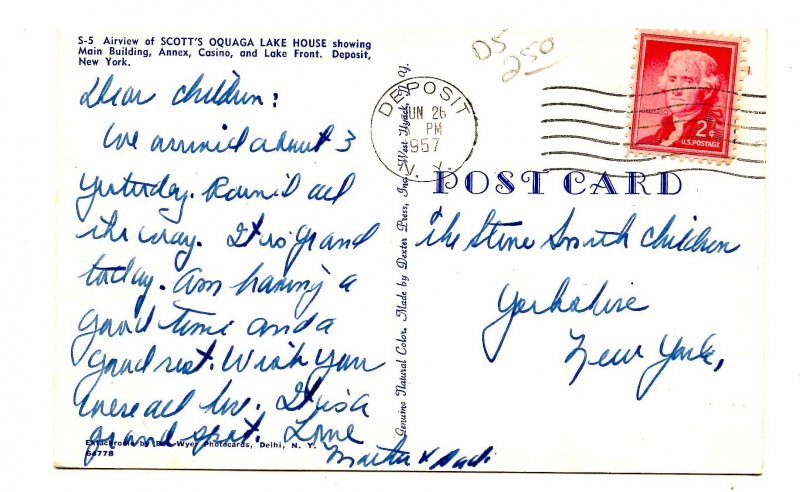 S-5 Airview of SCOTT'S OQUAGA LAKE HOUSE showing
Main Building, Annex, Casino, and Lake Front. Deposit,
New York.
Dear Children:
We arrived about 3
yesterday. Rained all
the way. It is grand
today. Am having a
good time and a
good rest. Wish you
were all here. It is a
grand spot. Love
& Dad
Ektachrome by Bob Wyer Photocards, Delhi, N. Y.
64778
Genuine Natural Color. Made by Dexter Press, Inc., West Nyack, N. Y.
D5
250
DEPOSIT
JUN 26
PM
1957
N. Y.
2¢
U.S. POSTAGE
POST CARD
The Smith Children
Yorkshire
New York,